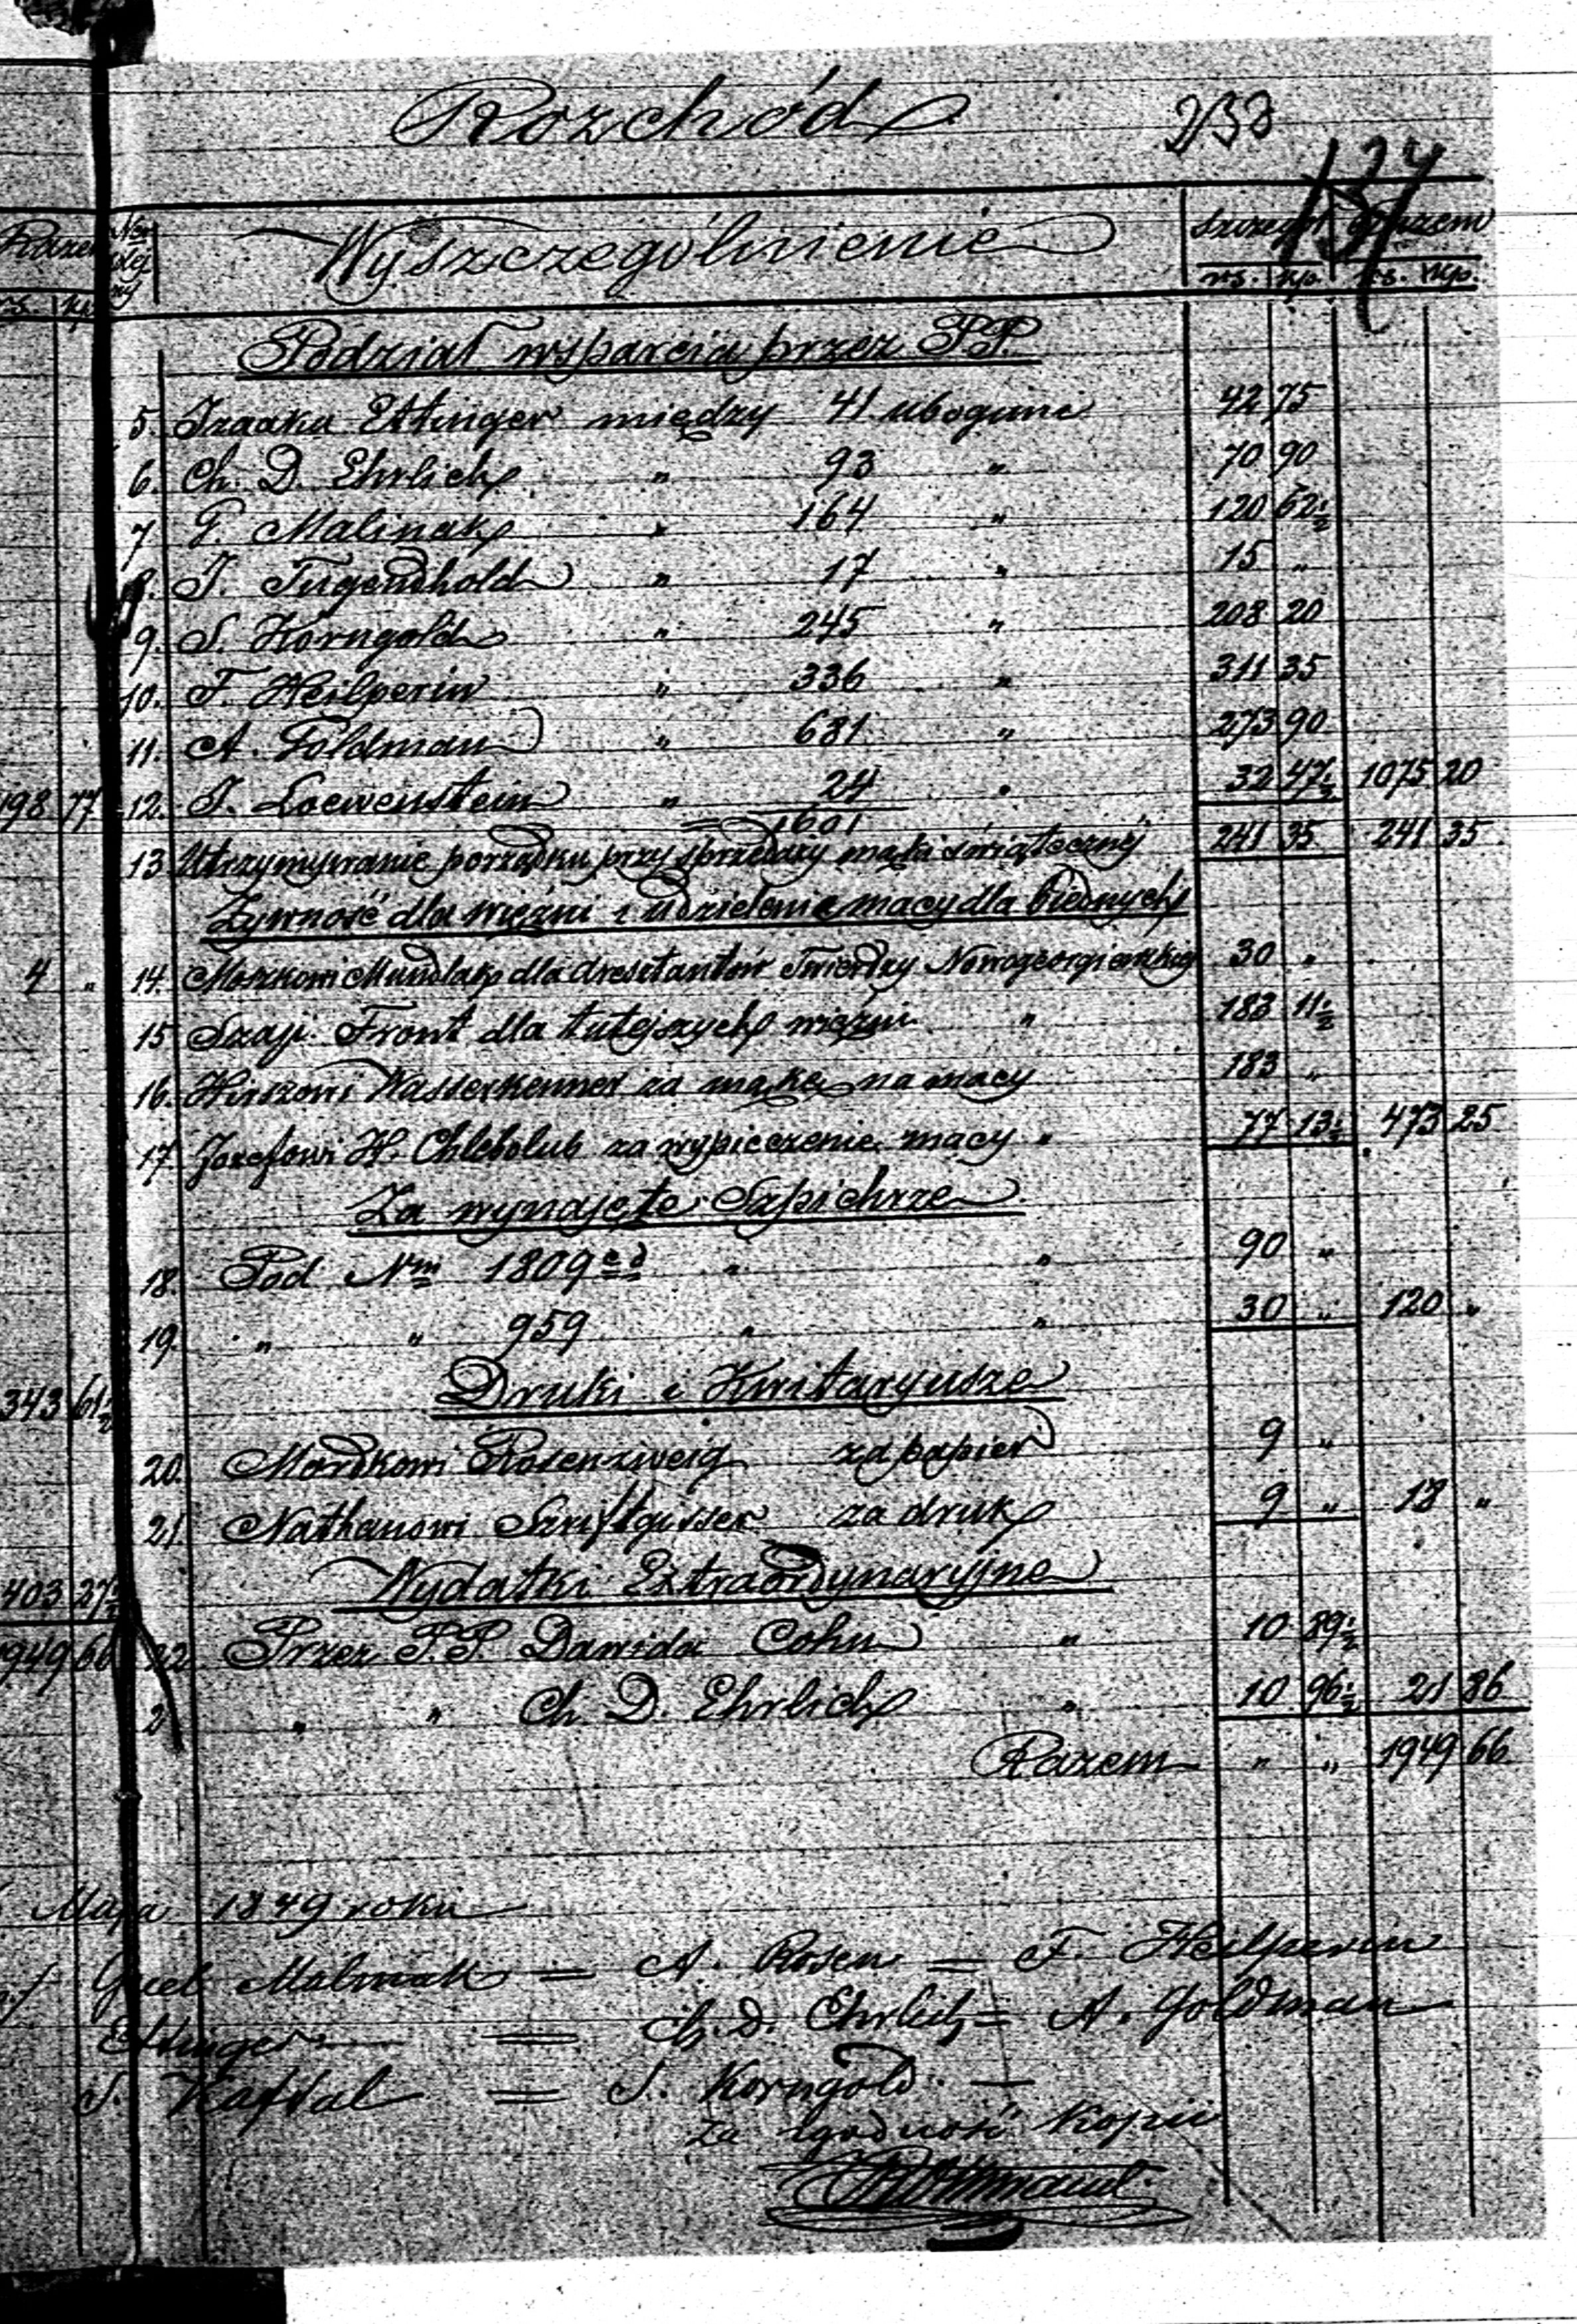 Rozchód 253
137
Razem Ner dow Wyszczególnienie szczegół Razem
rs. kp. rs. kp. rs. kp.
Podział wsparcia przez PP.
5. Izaaka Ettinger między 41 ubogimi 42 75
6. Ch. D. Ehrlich " 93 " 70 90
7 G. Malinak " 164 " 120 62½
8. J. Tugendhold " 17 " 15 "
9. S. Korngold " 245 " 208 20
10. F. Heilperin " 336 " 311 35
11. A. Goldman " 681 " 273 90
198 77 12. J. Loewenstein " 24 " 32 47½ 1075 20
= 1601
13 Utrzymywanie porządku przy sprzedaży mąki świątecznej 241 35 241 35
Żywność dla więźni i udzielenie macy dla biednych
4 " 14. Moszkowi Mundlak dla aresztantów Twierdzy Nowogeorgiewskiej 30 "
15 Szaji Front dla tutejszych więźni " 183 11½
16. Hirszowi Wasserkenner za mąkę na macy 183 "
17 Jozefowi H. Chlebolub za wypieczenie macy " 77 13½ 473 25
Za wynajęte Szpichrze
18. Pod Nm 1809 cd " " 90 "
19. " " 959 " " 30 " 120 "
343 61½ Druki i Kwitaryusze
20. Mordkowi Rosenzweig za papier 9 "
21. Nathanowi Szriftgisser za druk 9 " 18 "
403 27½ Wydatki Extraordynaryjne
1949 66 22 Przez P.P. Dawida Cohn " 10 89½
2 " " Ch. D. Ehrlich " 10 96½ 21 86
Razem " " 1949 66
Maja 1849 roku
Malinak = A. Rosen = F. Heilperin
Ettinger = Ch. D. Ehrlich = A. Goldman
S. Kaftal = S. Korngold. —
Za zgodność Kopii